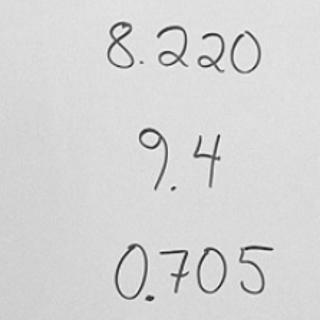 8.220
9.4
0.705